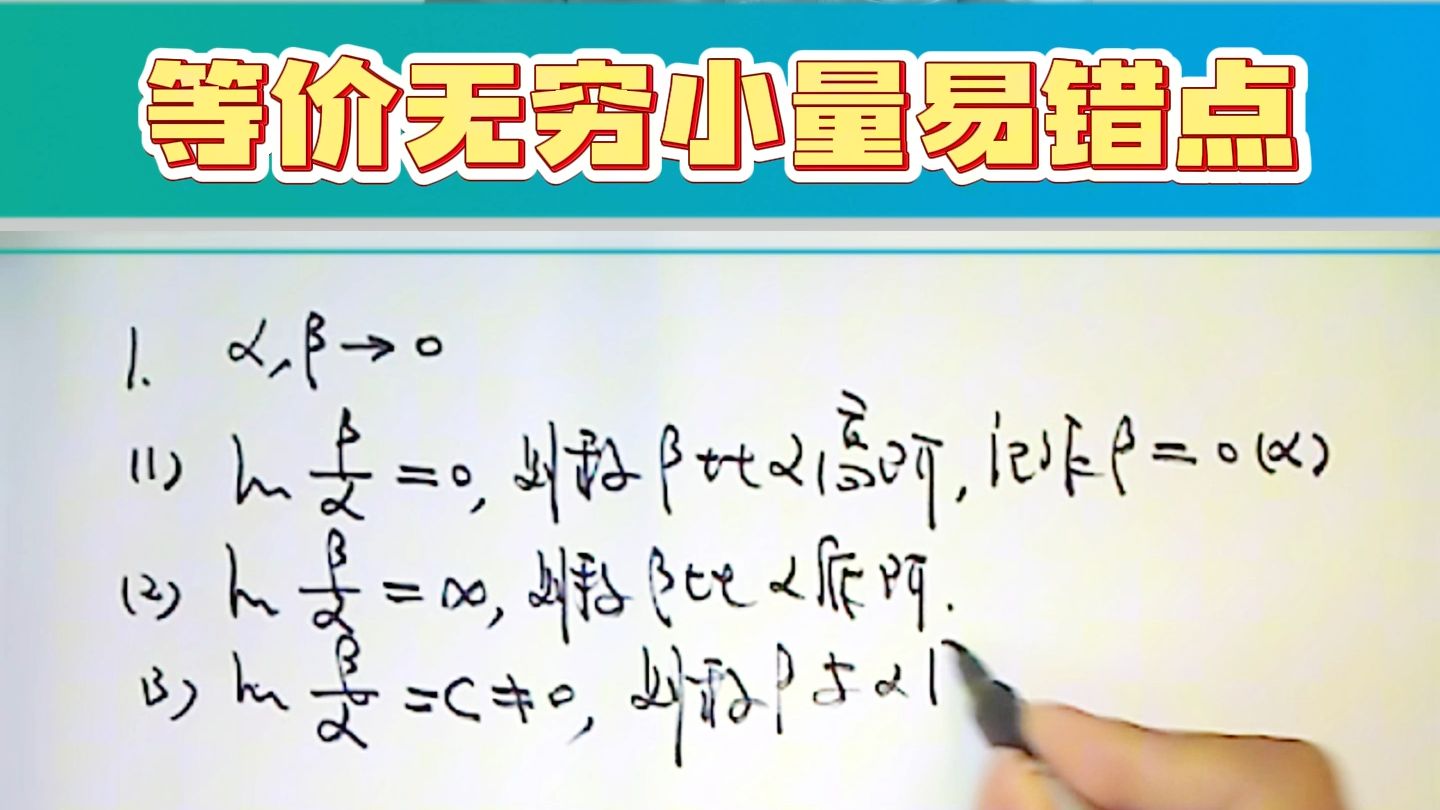 等价无穷小量易错点
1. α,β→0
(1) lim β/α =0, 则称β比α高阶, 记作β=o(α)
(2) lim β/α =∞, 则称β比α低阶.
(3) lim β/α =C≠0, 则称β与α